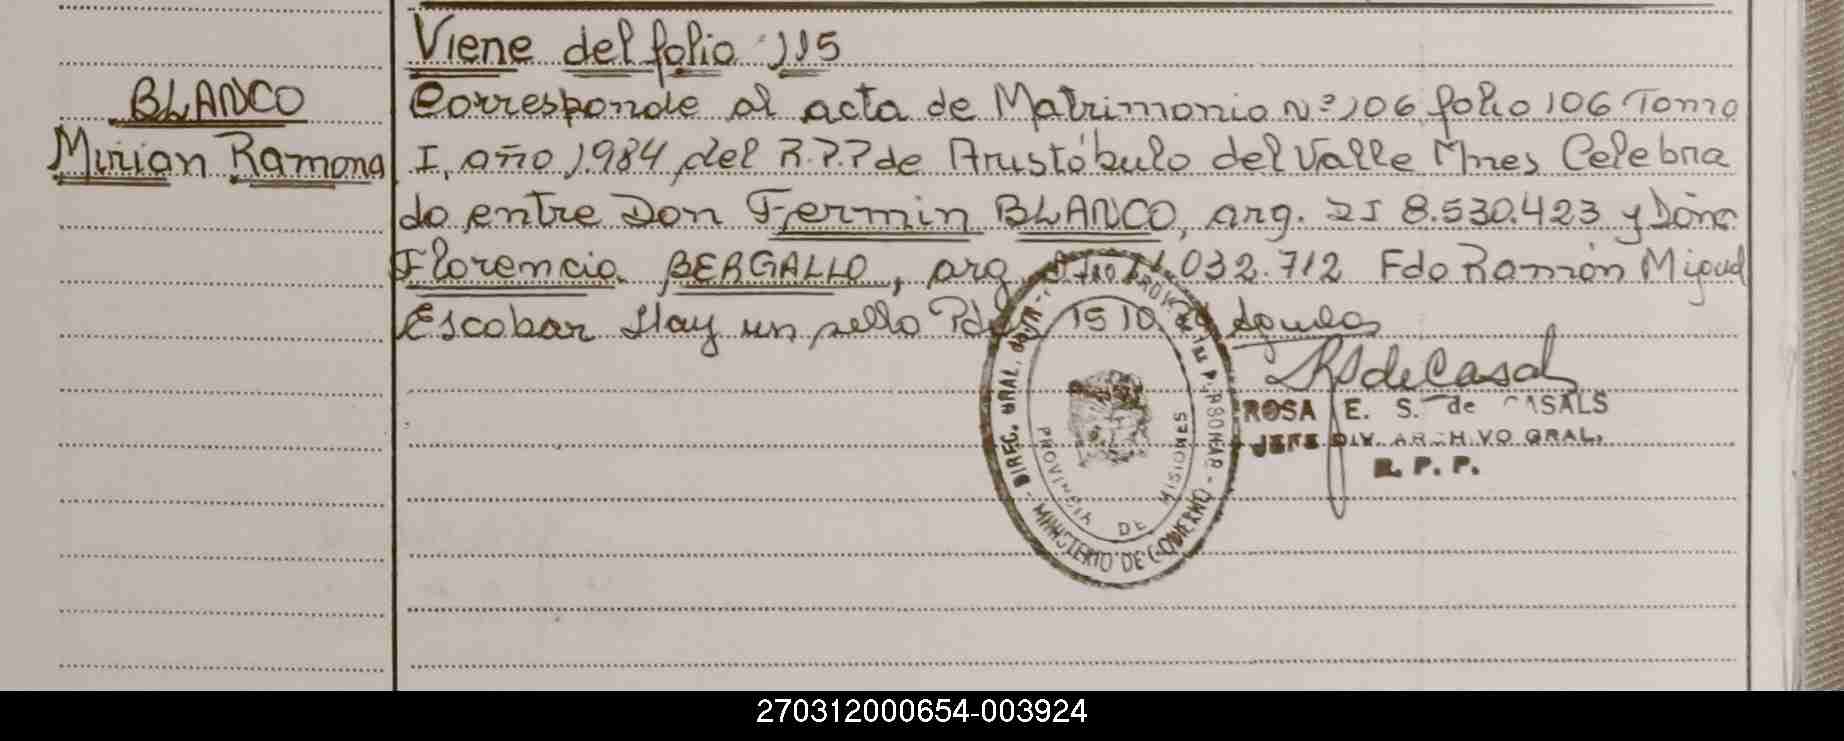 Viene del folio 115
BLANCO
Mirian Ramona
Corresponde al acta de Matrimonio Nº 106 folio 106 Tomo
I, año 1984 del R.P.P de Aristóbulo del Valle Mnes Celebra
do entre Don Fermin BLANCO, arg. DI 8.530.423 y Doña
Florencia BERGALLO, arg. 032.712 Fdo Ramón Miguel
Escobar Hay un sello 15 10
R S de Casals
ROSA E. S. de CASALS
JEFE DIV. ARCHIVO GRAL.
R. P. P.
DIREC. GRAL.
MINISTERIO DE GOBIERNO
PROVINCIA DE MISIONES
270312000654-003924